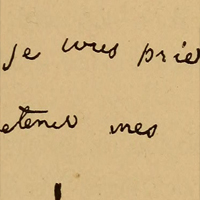 Je vous prie
etendre mes